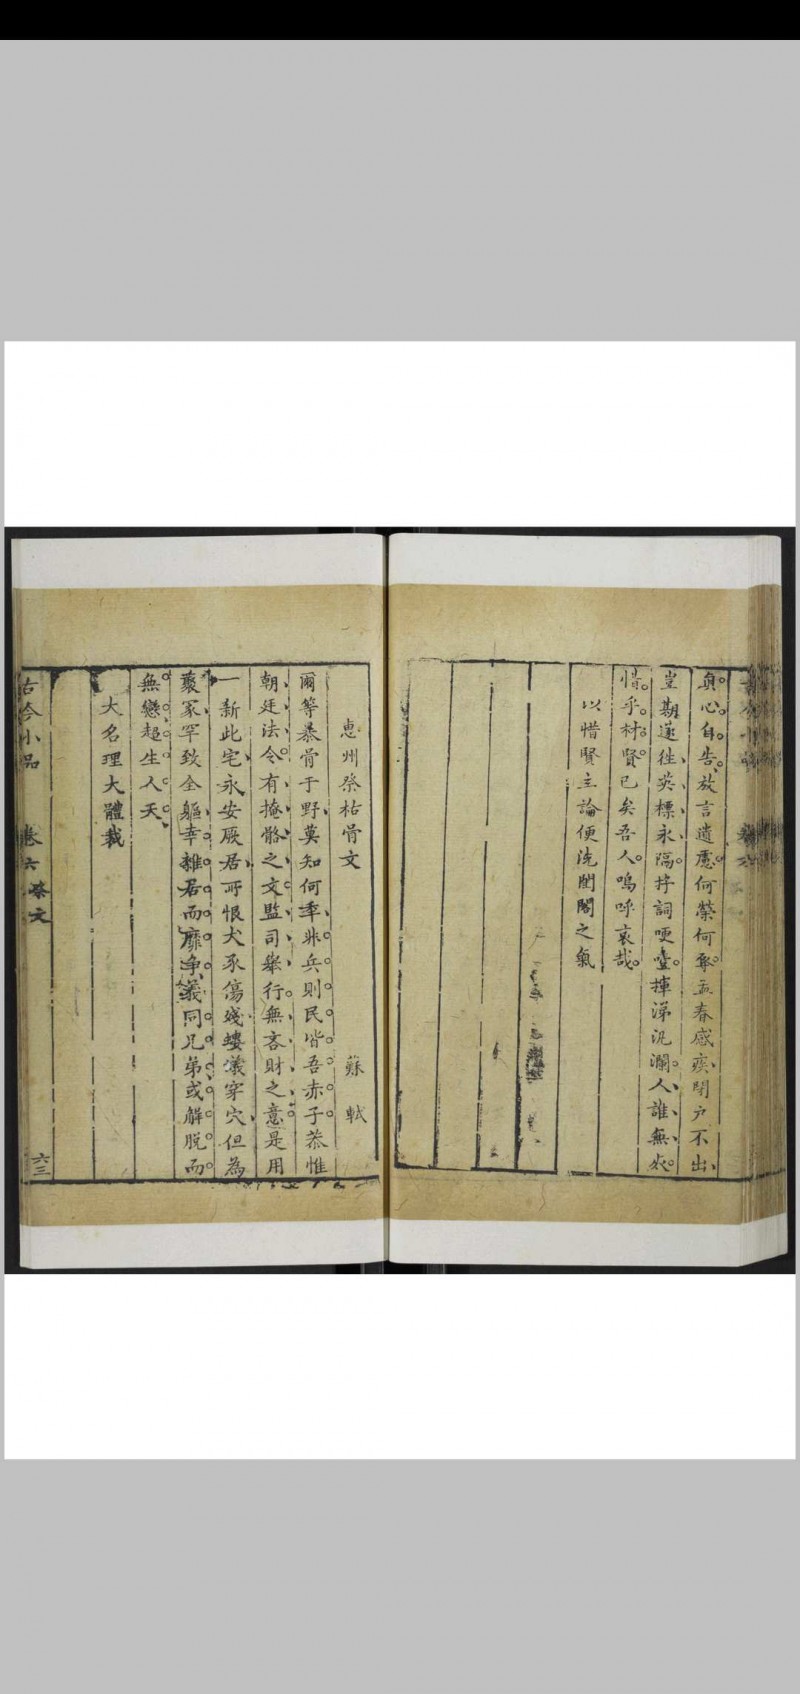 真心自告放言遺慮何榮何辱孟春感疾閉戶不出
豈期遂徃英標永隔抒詞哽噎揮涕汍瀾人誰無死
惜乎材賢已矣吾人嗚呼哀哉
以惜賢主論便洗閨閣之氣
惠州祭枯骨文
蘇軾
爾等暴骨于野莫知何年非兵則民皆吾赤子恭惟
朝廷法令有掩骼之文監司舉行無吝財之意是用
一新此宅永安厥居所恨犬豕傷殘螻蟻穿穴但為
藂冢罕致全軀幸雜居而靡爭義同兄弟或解脫而
無戀超生人天
大名理大體裁
古今小品
卷六
祭文
六三